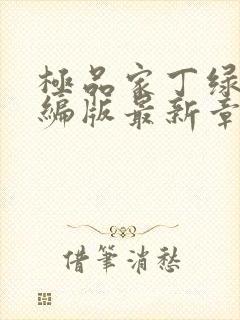 極品家丁绿
編版最新章
借筆消愁